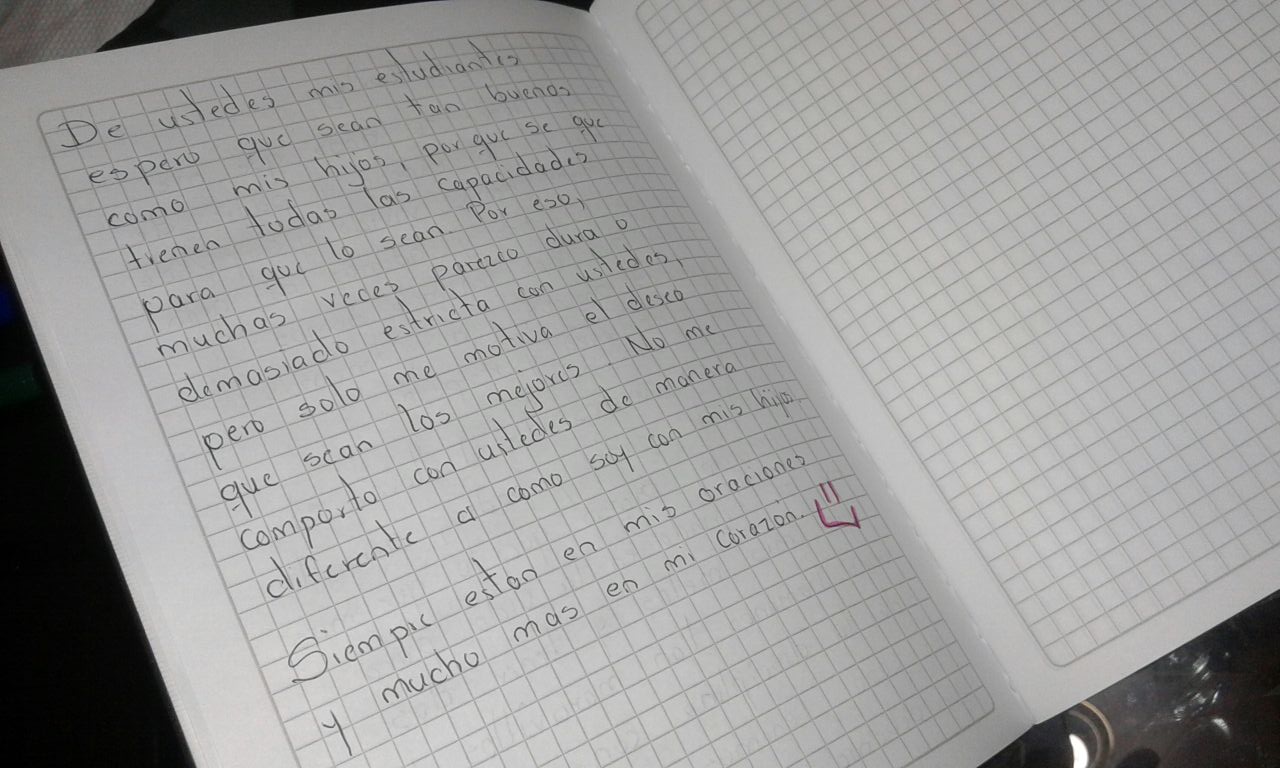 De ustedes mis estudiantes
espero que sean tan buenos
como mis hijos, por que se que
tienen todas las capacidades
para que lo sean. Por eso,
muchas veces parezco dura o
demasiado estricta con ustedes,
pero solo me motiva el deseo
que sean los mejores. No me
comporto con ustedes de manera
diferente a como soy con mis hijos.
Siempre estan en mis oraciones
y mucho mas en mi corazon.